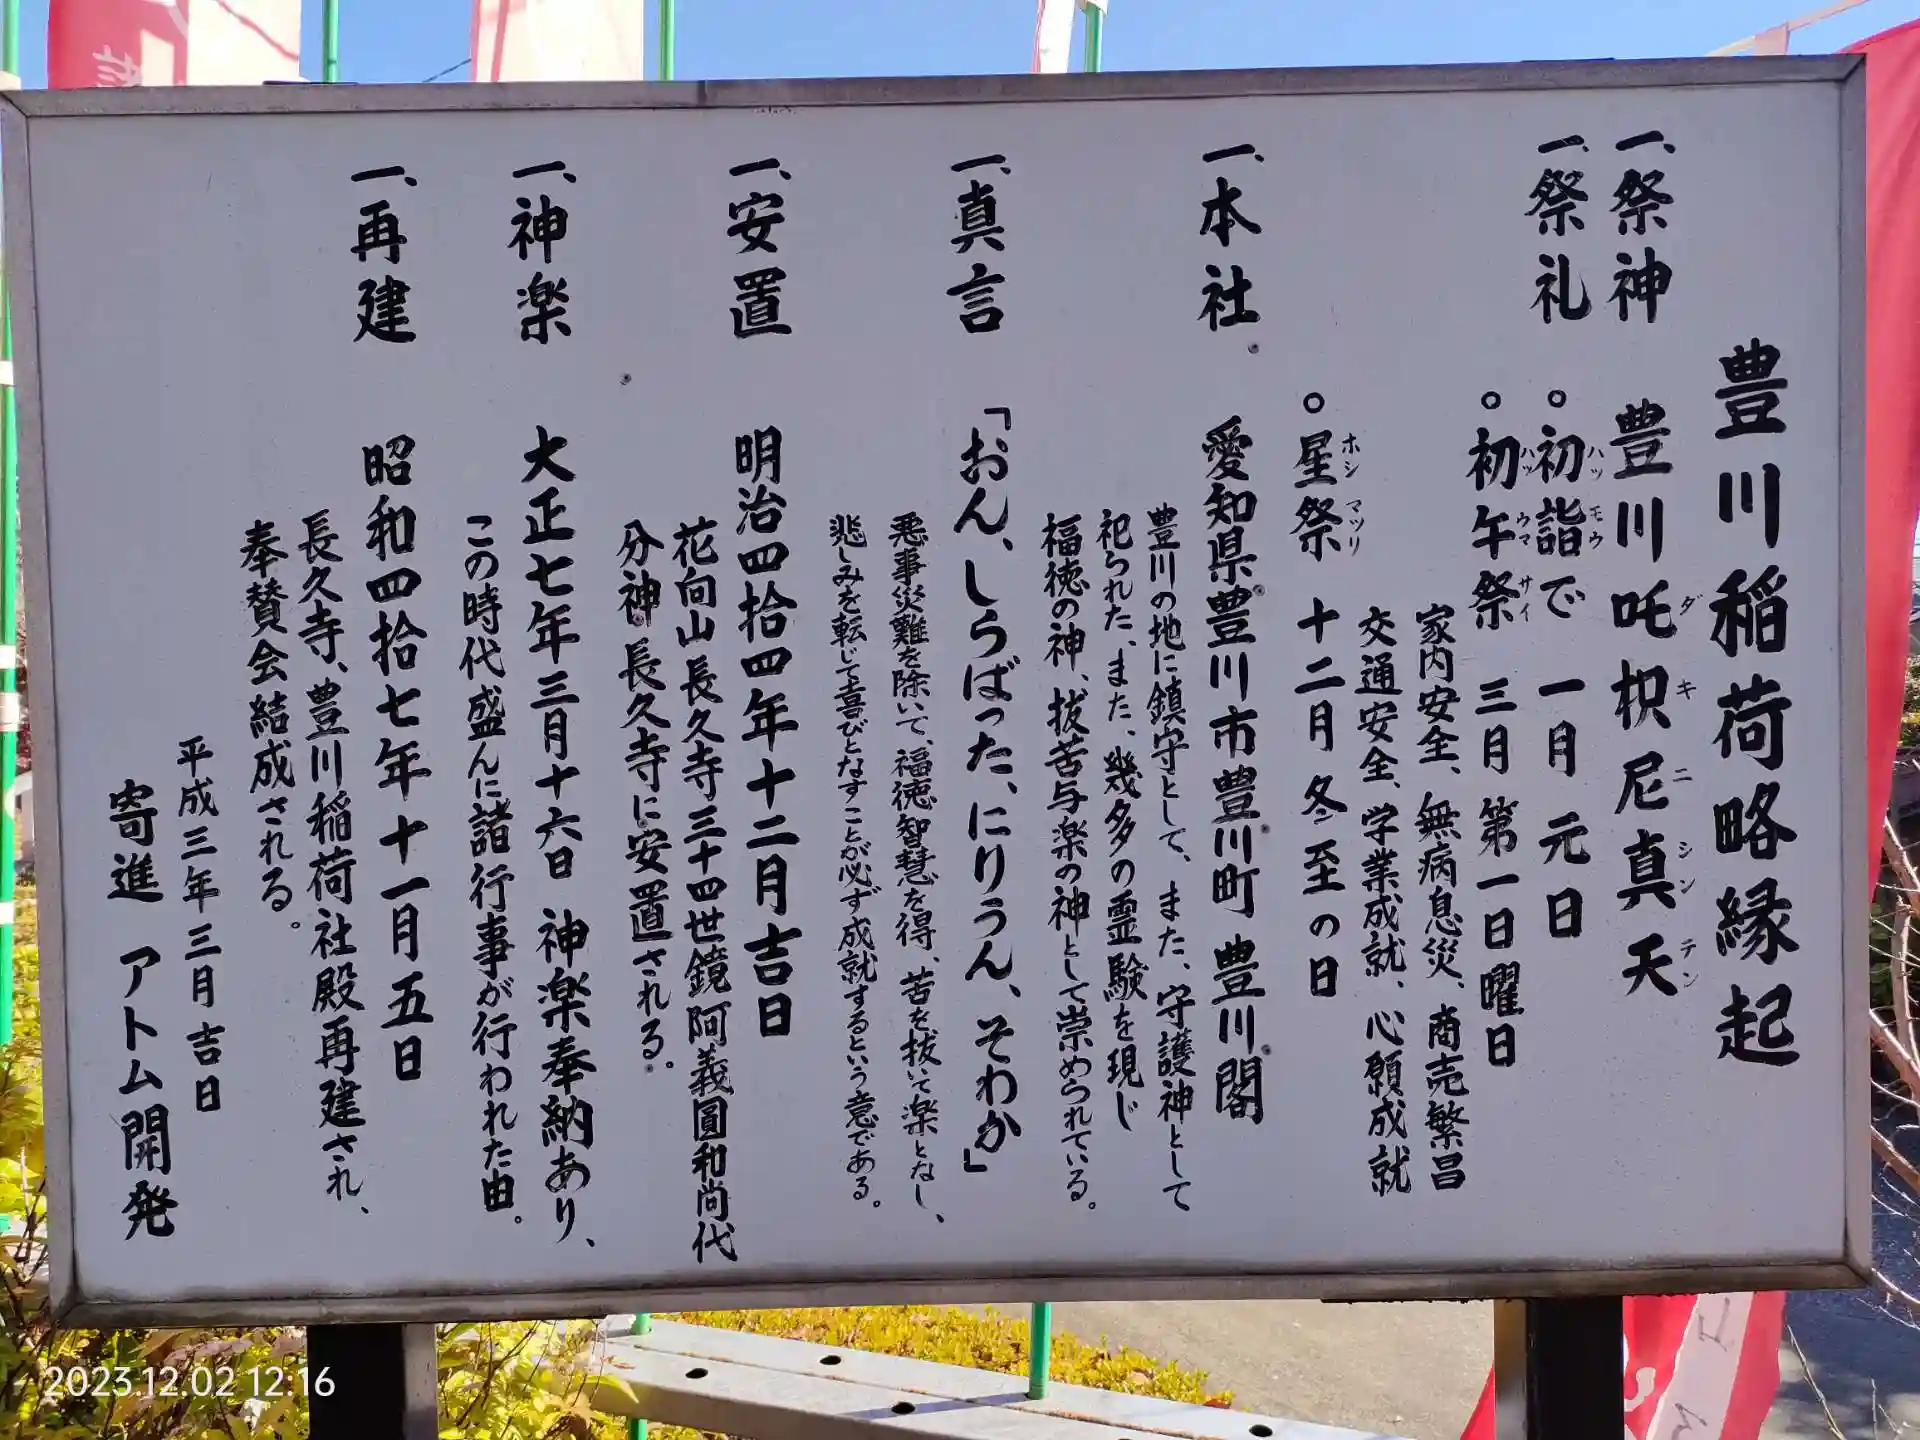 豊川稲荷略縁起
一、祭神 豊川吒枳尼真天
ダキニシンテン
一、祭礼 。初詣で 一月 元日
ハツモウ
。初午祭 三月 第一日曜日
ハツウマサイ
家内安全、無病息災、商売繁昌
交通安全、学業成就、心願成就
。星祭 十二月 冬至の日
ホシマツリ
一、本社 愛知県豊川市豊川町 豊川閣
豊川の地に鎮守として、また、守護神として
祀られた、また、幾多の霊験を現じ
福徳の神、抜苦与楽の神として崇められている。
一、真言 「おん、しらばった、にりうん、そわか」
悪事災難を除いて、福徳智慧を得、苦を抜いて楽となし、
悲しみを転じて喜びとなすことが必ず成就するという意である。
一、安置 明治四拾四年十二月吉日
花向山長久寺三十四世鏡阿義圓和尚代
分神長久寺に安置される。
一、神楽 大正七年三月十六日 神楽奉納あり、
この時代盛んに諸行事が行われた由。
一、再建 昭和四拾七年十一月五日
長久寺、豊川稲荷社殿再建され、
奉賛会結成される。
平成三年三月吉日
寄進 アトム開発
2023.12.02 12:16